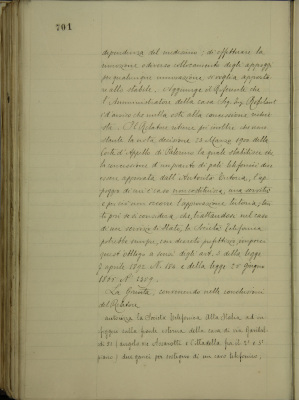 701
dipendenza del medesimo; di effettuare la
rimozione e diverso collocamento degli appoggi
per qualunque innovazione, si voglia apporta-
re allo stabile. Aggiunge il Referente che
l'Amministratore della casa Sig. Ing.
d'avviso che nulla osti alla concessione richie-
sta. Il Relatore ritenuto
stante la nota decisione 28 Marzo 1900 della
Corte d'Appello di Palermo la quale stabilisce che
la concessione d'impianto di pali telefonici do-
vesse approvata dall'Autorità tutoria, l'ap-
poggio di cui è caso non costituisca una servitù
e perciò non occorra l'approvazione tutoria; tan-
to più se si considera, che, trattandosi nel caso
di un servizio di Stato, la Società telefonica
potrebbe sempre, con decreto prefettizio imporre
questo obbligo a sensi degli art. 5 della legge
7 aprile 1892 N. 184 e della legge 25 giugno
1865 N. 2359.
La Giunta, convenendo nelle conclusioni
del Relatore
autorizza la Società Telefonica Alta Italia ad in-
figgere sulla fronte interna della casa di via Garibal-
di 21 (angolo via Assarotti e Cittadella fra il 2° e 3°
piano) due ganci per sostegno di un cavo telefonico;